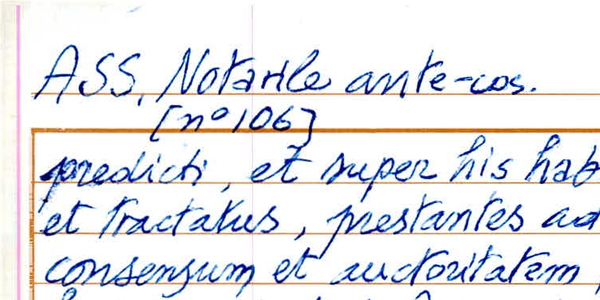 ASS, Notarile ante-cos.
[nº 106]
predicti, et super his hab
et tractatus, prestantes ad
consensum et auctoritatem,